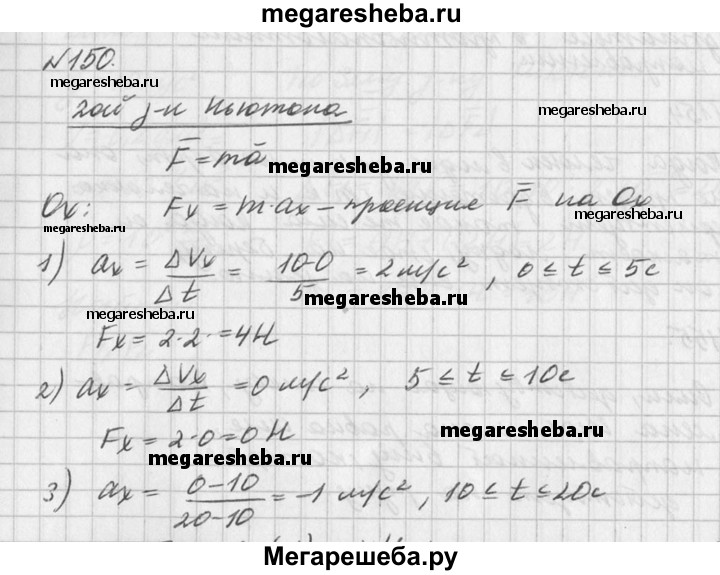 megaresheba.ru
№150.
megaresheba.ru
2ой з-н Ньютона
megaresheba.ru
F̅ = ma̅
megaresheba.ru
Ox: Fx = m·ax – проекция F̅ на Ox
megaresheba.ru
megaresheba.ru
1) ax = ΔVx/Δt = (10-0)/5 = 2 м/с², 0 ≤ t ≤ 5с
megaresheba.ru
megaresheba.ru
Fx = 2·2 = 4Н
2) ax = ΔVx/Δt = 0 м/с², 5 ≤ t ≤ 10с
Fx = 2·0 = 0 Н
megaresheba.ru
megaresheba.ru
3) ax = (0-10)/(20-10) = -1 м/с², 10 ≤ t ≤ 20с
megaresheba.ru
megaresheba.ru
Мегарешеба.ру